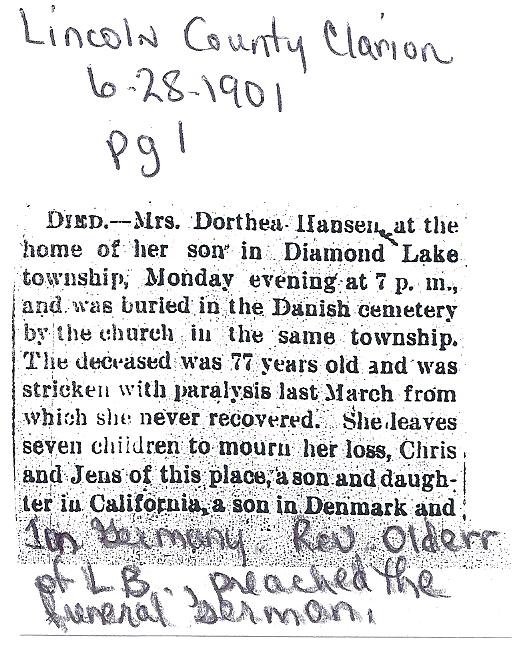 Lincoln County Clarion
6-28-1901
pg 1
DIED.—Mrs. Dorthea Hansen, at the
home of her son in Diamond Lake
township, Monday evening at 7 p. m.,
and was buried in the Danish cemetery
by the church in the same township.
The deceased was 77 years old and was
stricken with paralysis last March from
which she never recovered. She leaves
seven children to mourn her loss, Chris
and Jens of this place, a son and daugh-
ter in California, a son in Denmark and
Germany. Rev. Olderr
of L B., preached the
funeral sermon.